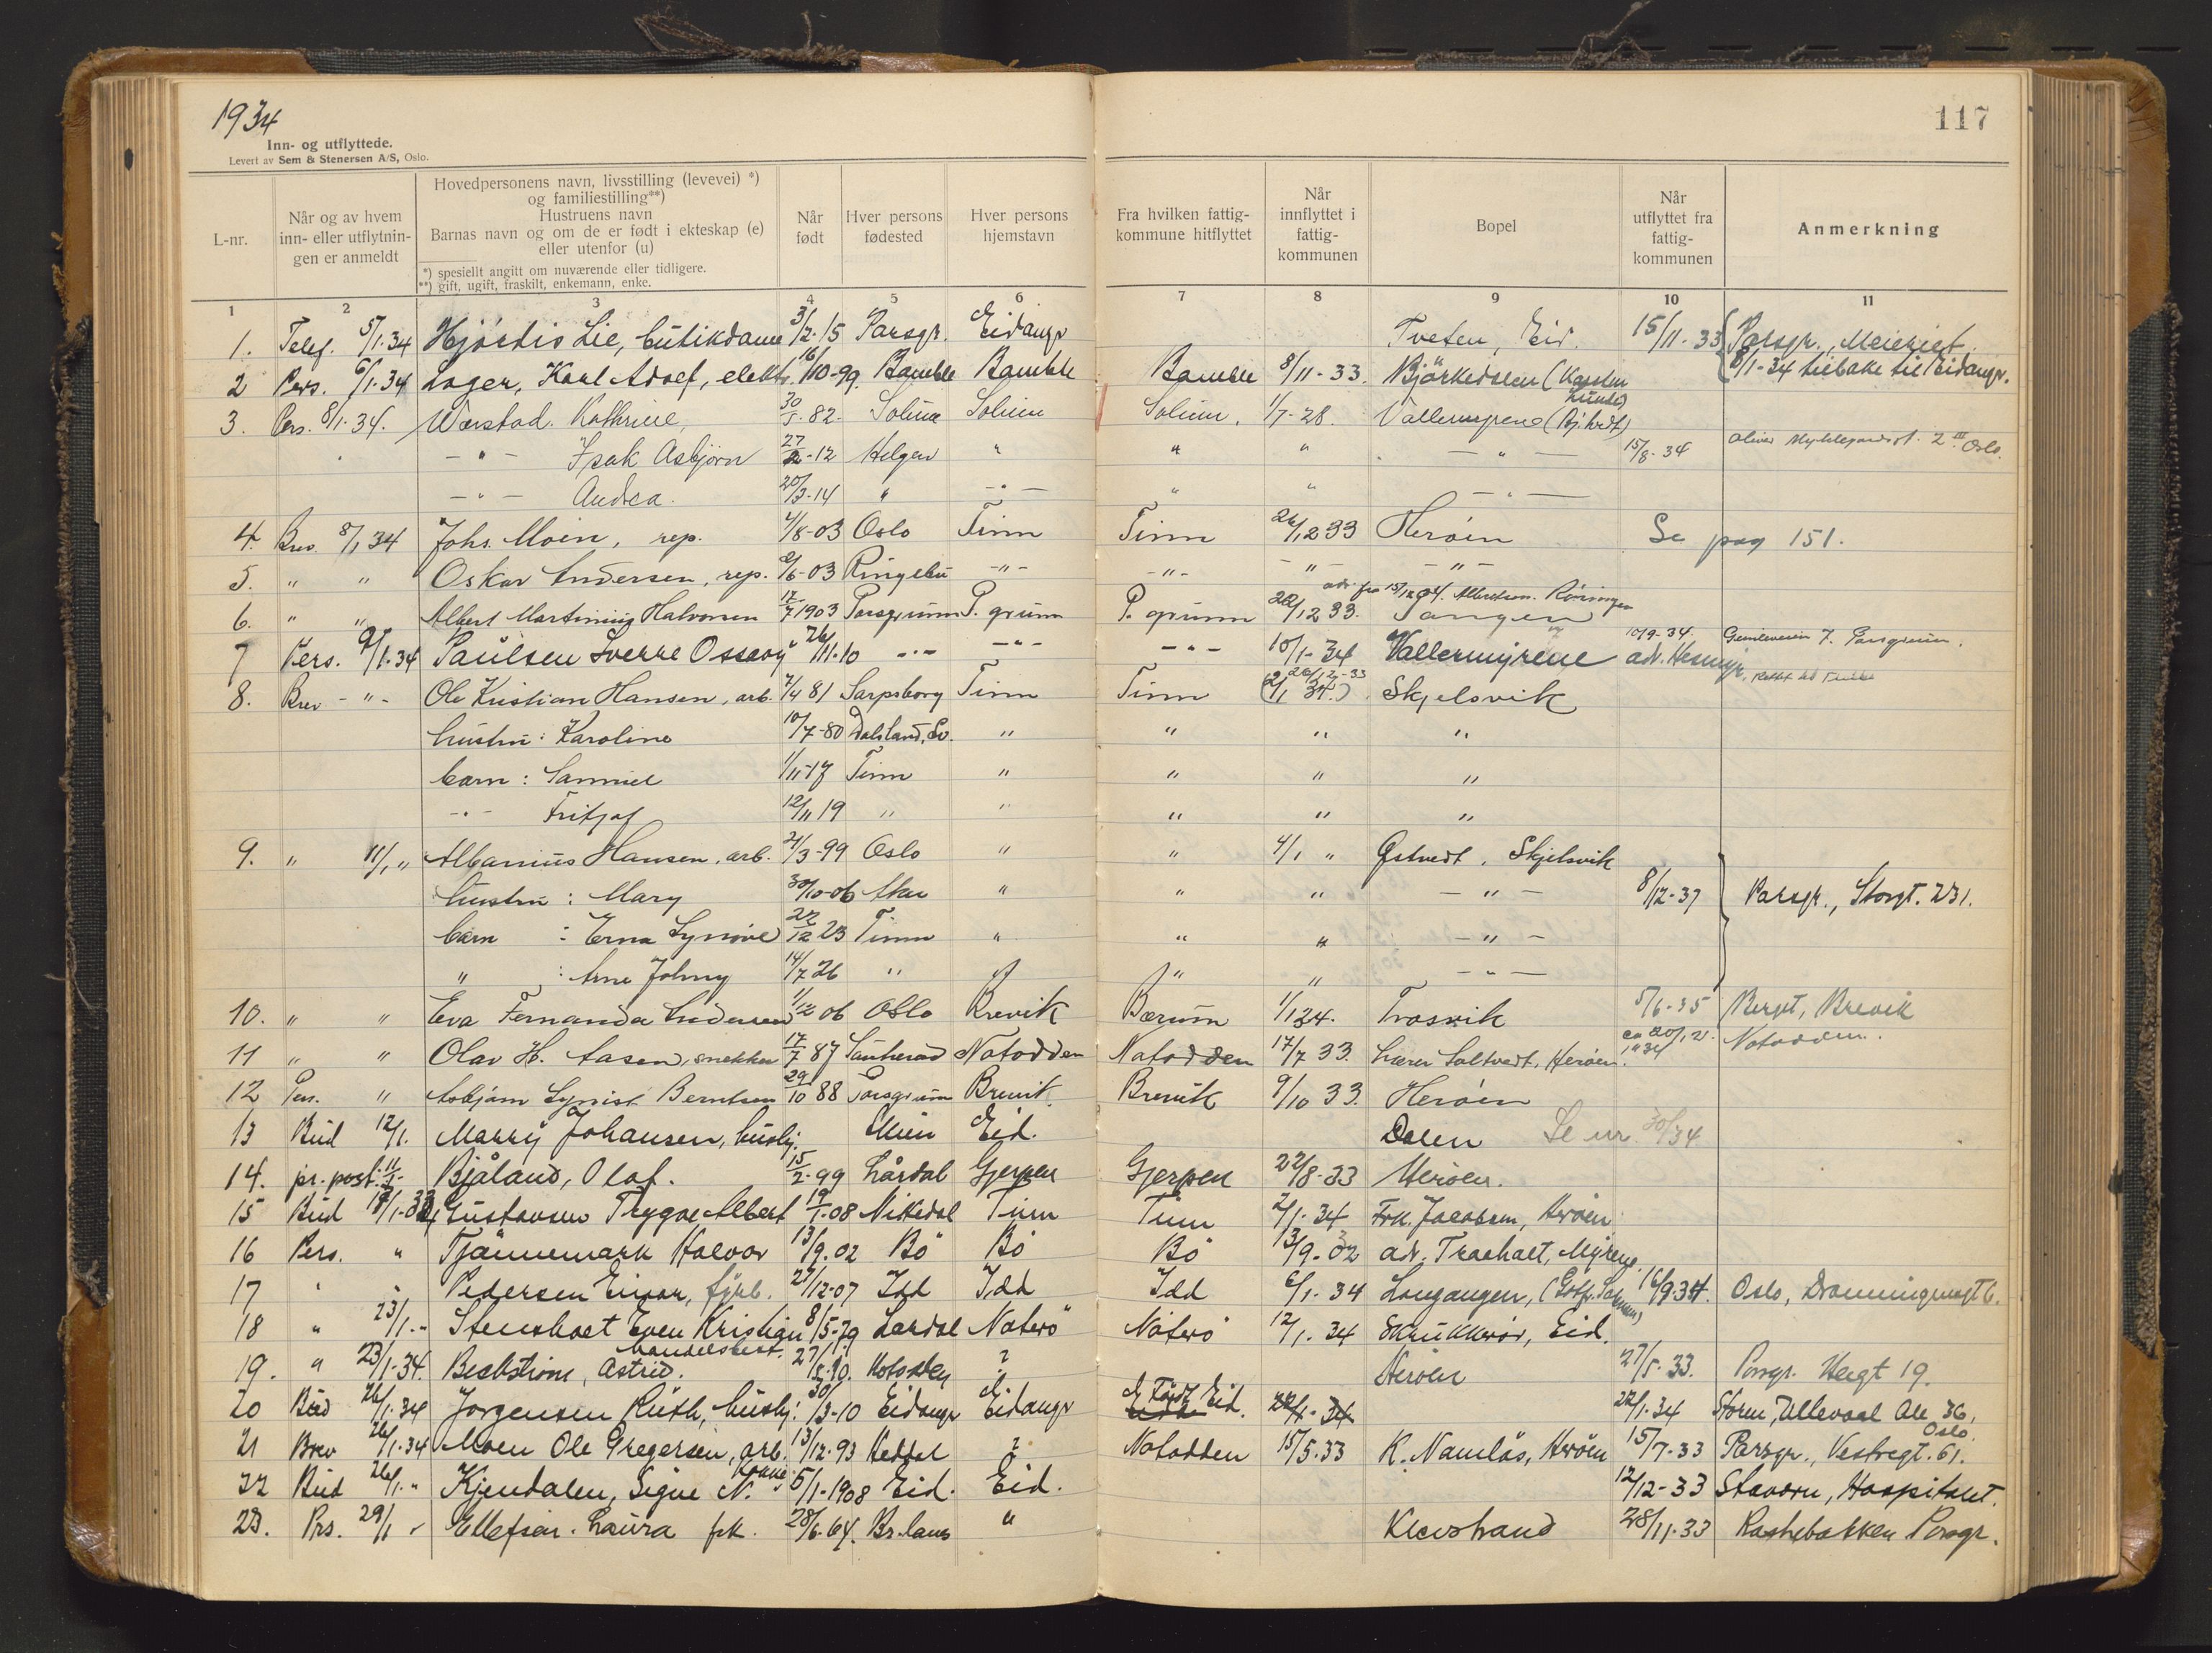 1934
117
Inn- og utflyttede.
Levert av Sem & Stenersen A/S, Oslo.
L-nr.
Når og av hvem inn- eller utflytnin-gen er anmeldt
Hovedpersonens navn, livsstilling (levevei) *)
og familiestilling**)
Hustruens navn
Barnas navn og om de er født i ekteskap (e)
eller utenfor (u)
*) spesiellt angitt om nuværende eller tidligere.
**) gift, ugift, fraskilt, enkemann, enke.
Når født
Hver persons fødested
Hver persons hjemstavn
Fra hvilken fattig-kommune hitflyttet
Når innflyttet i fattig-kommunen
Bopel
Når utflyttet fra fattig-kommunen
Anmerkning
1 2 3 4 5 6 7 8 9 10 11
1. Telef. 5/1-34 Hjørdis Lie, butikdame 3/2-15 Porsgr. Eidangr Tveten, Eid. 15/11-33 Porsgr., Meieriet.
8/1-34 tilbake til Eidangr.
2 Pers. 6/1-34 Loger, Karl Adolf, elektr. 16/10-99. Bamble Bamble Bamble 8/11-33. Björkedalen (Karsten Lunde)
3. Pers. 8/1-34. Wærstad. Kathrine, 30/5-82. Solum Solum Solum. 1/7-28. Vallermyrene (Bj. hvdt)
-"- Isak Asbjörn 27/2-12 Helgen " " " -"- 15/8-34 Oslo.
-"- Andrea. 20/3-14 " -"- " " -"-
4. Brev 8/1 34 Johs. Moen, rep. 4/8-03 Oslo Tinn Tinn 26/12 33 Herøen Se pag 151.
5. " " Oskar Andersen, rep. 2/6-03 Ringebu -"- -"- -"- -"-
adr. fra 15/12 34. Albretsen. Rönningen
6. " " Albert Martinius Halvorsen 17/7 1903 Porsgrunn P. grunn P. grunn 20/12 33. Tangen
7 Pers. 9/1-34 Paulsen Sverre Ossavy 26/11-10 -"- -"- -"- 10/1-34 Vallermyrene 10/9-34. Gamleveien 7. Porsgrunn.
8. Brev -"- Ole Kristian Hansen, arb. 7/4 81 Sarpsborg Tinn Tinn 20/12-33 (2/1 34.) Skjelsvik
hustru: Karoline 10/7-80 Dalsland, Sv. " " " "
barn: Samuel 1/11-17 Tinn " " " "
-"- Fritjof 12/11 19 " " " " "
9. " 11/1 " Albanius Hansen, arb. 21/3-99 Oslo " " 4/1 " Østvedt, Skjelsvik
hustru: Mary 30/10-06 Aker " " " -"- 8/12-37 Porsgr., Storgt. 231.
barn: Erna Synnøve 22/12 23 Tinn " " " -"-
" : Arne Johnny 14/7 26 " " " " -"-
10. " " Eva Fernanda Andersen 1/12 06 Oslo Brevik Bærum 1/1 34. Trosvik 5/6-35 Berget, Brevik
11 " " Olav H. Aasen, snekker 17/7 87 Sauherad Notodden Notodden 17/7 33. Lærer Saltvedt, Herøen. Notodden.
12 Pers. " Asbjørn Synist Berntsen 29/10 88 Porsgrunn Brevik Brevik 9/10 33. Herøen
13 Bud 12/1. Marry Johansen, hushj. Skien Eid. Dalen Se nr. 30/34
14. pr. post: 11/1- Bjåland, Olaf. 15/2-99 Lårdal Gjerpen Gjerpen 22/8-33 Herøen.
15 Bud Gustavsen Trygve Albert 19/1-08 Nitedal Tinn Tinn 2/1-34 Frk. Jacobsen, Herøen
16 Pers. " Tjännemark Halvor 13/9.02 Bö Bö Bö 13/9-32 adr. Traahalt, Myrene.
17 " " Pedersen Einar, fyrb. 27/12-07 Idd Idd Idd 6/1-34 Langangen, 16/9-34. Oslo, Dronningensgt 6.
18 " 23/1.- Stenshaet Even Kristian 8/5-79 Lardal Nøterö Nøterö 12/1.34 Skrukkerør, Eid.
19. " 23/1-34. Beckstrøm, Astrid. handelsbest. Notodden ? Herøen 27/5-33. Porsgr. Hergt 19.
20 Bud 26/1-34 Jørgensen Ruth, hushj. 30/3-10 Eidangr Eidangr Född Eid. 22/1-34 22/1-34 Storm, Ullevaal Ale 36, Oslo.
21 Brev 26/1-34 Moen Ole Gregersen, arb. 13/12-93 Heddal ? Notodden 15/5.33 K. Namløs, Herøen 15/7-33 Porsgr., Vestregt. 61.
22 Bud 26/1." Kjendalen, Signe N. kokke 5/1-1908 Eid. Eid. 12/12-33 Stavern, Hospitalet.
23. Prs. 29/1 " Ellefsen. Laura frk. 28/6.64. Br.lans " Klevstrand 28/11.33 Raskebakken Porsgr.